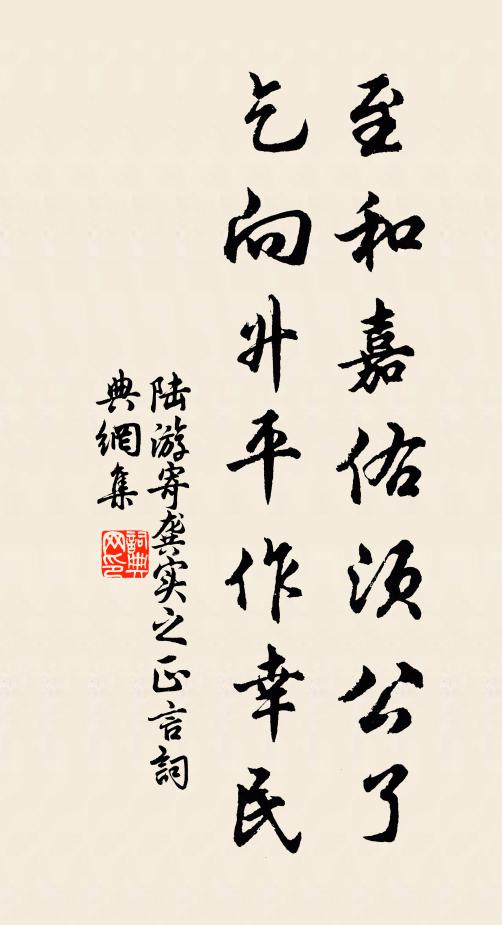 至和嘉佑须公了
乞向升平作幸民
陆游寄龚实之正言詞
典網集
詞典网印